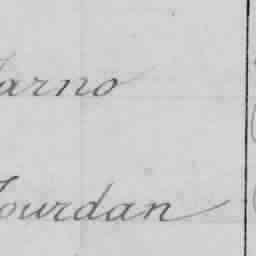 Jarno
Jourdan